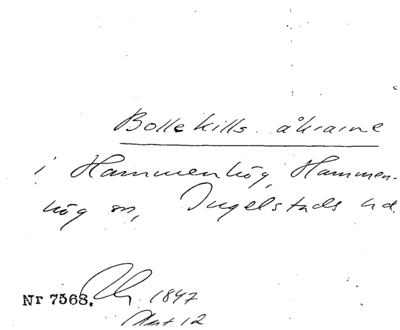 Bollekills åkrarne
i Hammenhög, Hammen-
hög sn, Ingelstads hd.
Nr 7568. 1847
Akt 12